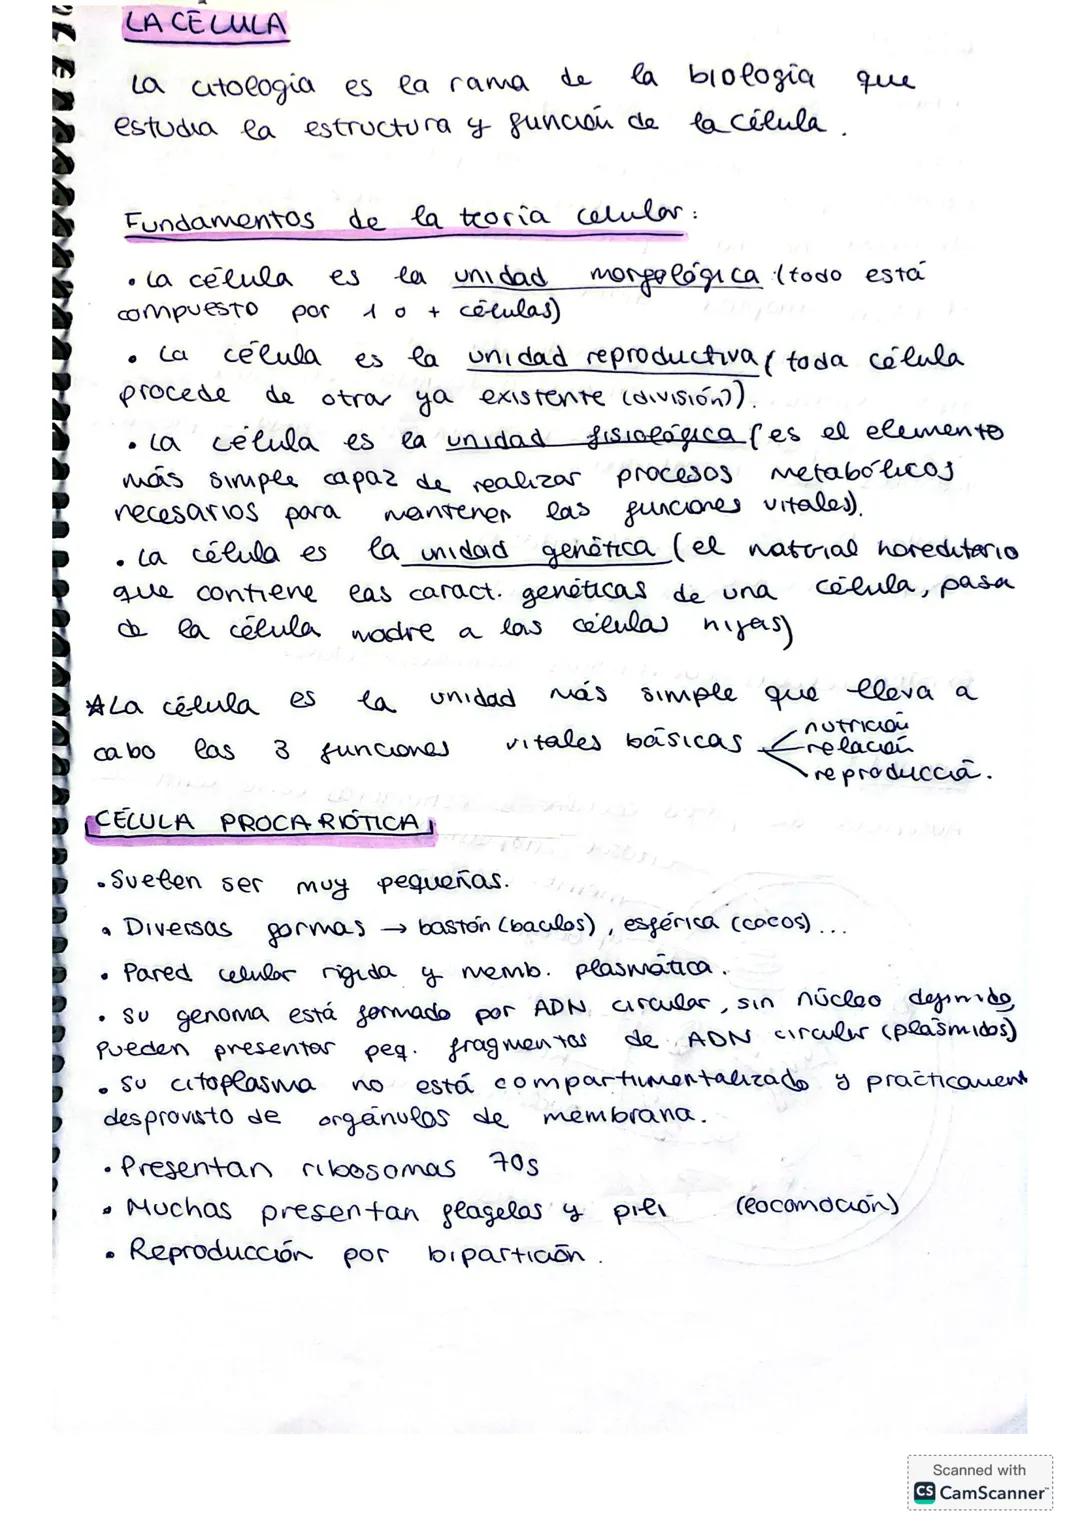 LA CÉLULA
La citología es la rama de la biología que
estudia la estructura y función de la célula.
Fundamentos de la teoría celular:
• La célula es la unidad morfológica (todo está
compuesto por 1 o + células)
• La célula es la unidad reproductiva (toda célula
procede de otrar ya existente (división)).
• La célula es la unidad fisiológica (es el elemento
más simple capaz de realizar procesos metabólicos
necesarios para mantener las funciones vitales).
• La célula es la unidad genética (el material hereditario
que contiene las caract. genéticas de una célula, pasa
de la célula madre a las células hijas)
*La célula es la unidad más simple que lleva a
cabo las 3 funciones vitales básicas
nutrición
relación
reproducció.
CÉLULA PROCARIÓTICA
• Suelen ser muy pequeñas.
• Diversas formas → bastón (bacilos), esférica (cocos)...
• Pared celular rígida y memb. plasmática.
• Su genoma está formado por ADN circular, sin núcleo definido,
Pueden presentar peq. fragmentos de ADN circular (plásmidos)
• Su citoplasma no está compartimentalizado y prácticament
desprovisto de orgánulos de membrana.
• Presentan ribosomas 70s
• Muchas presentan flagelos y pili (locomoción)
• Reproducción por bipartición.
Scanned with
CS CamScanner